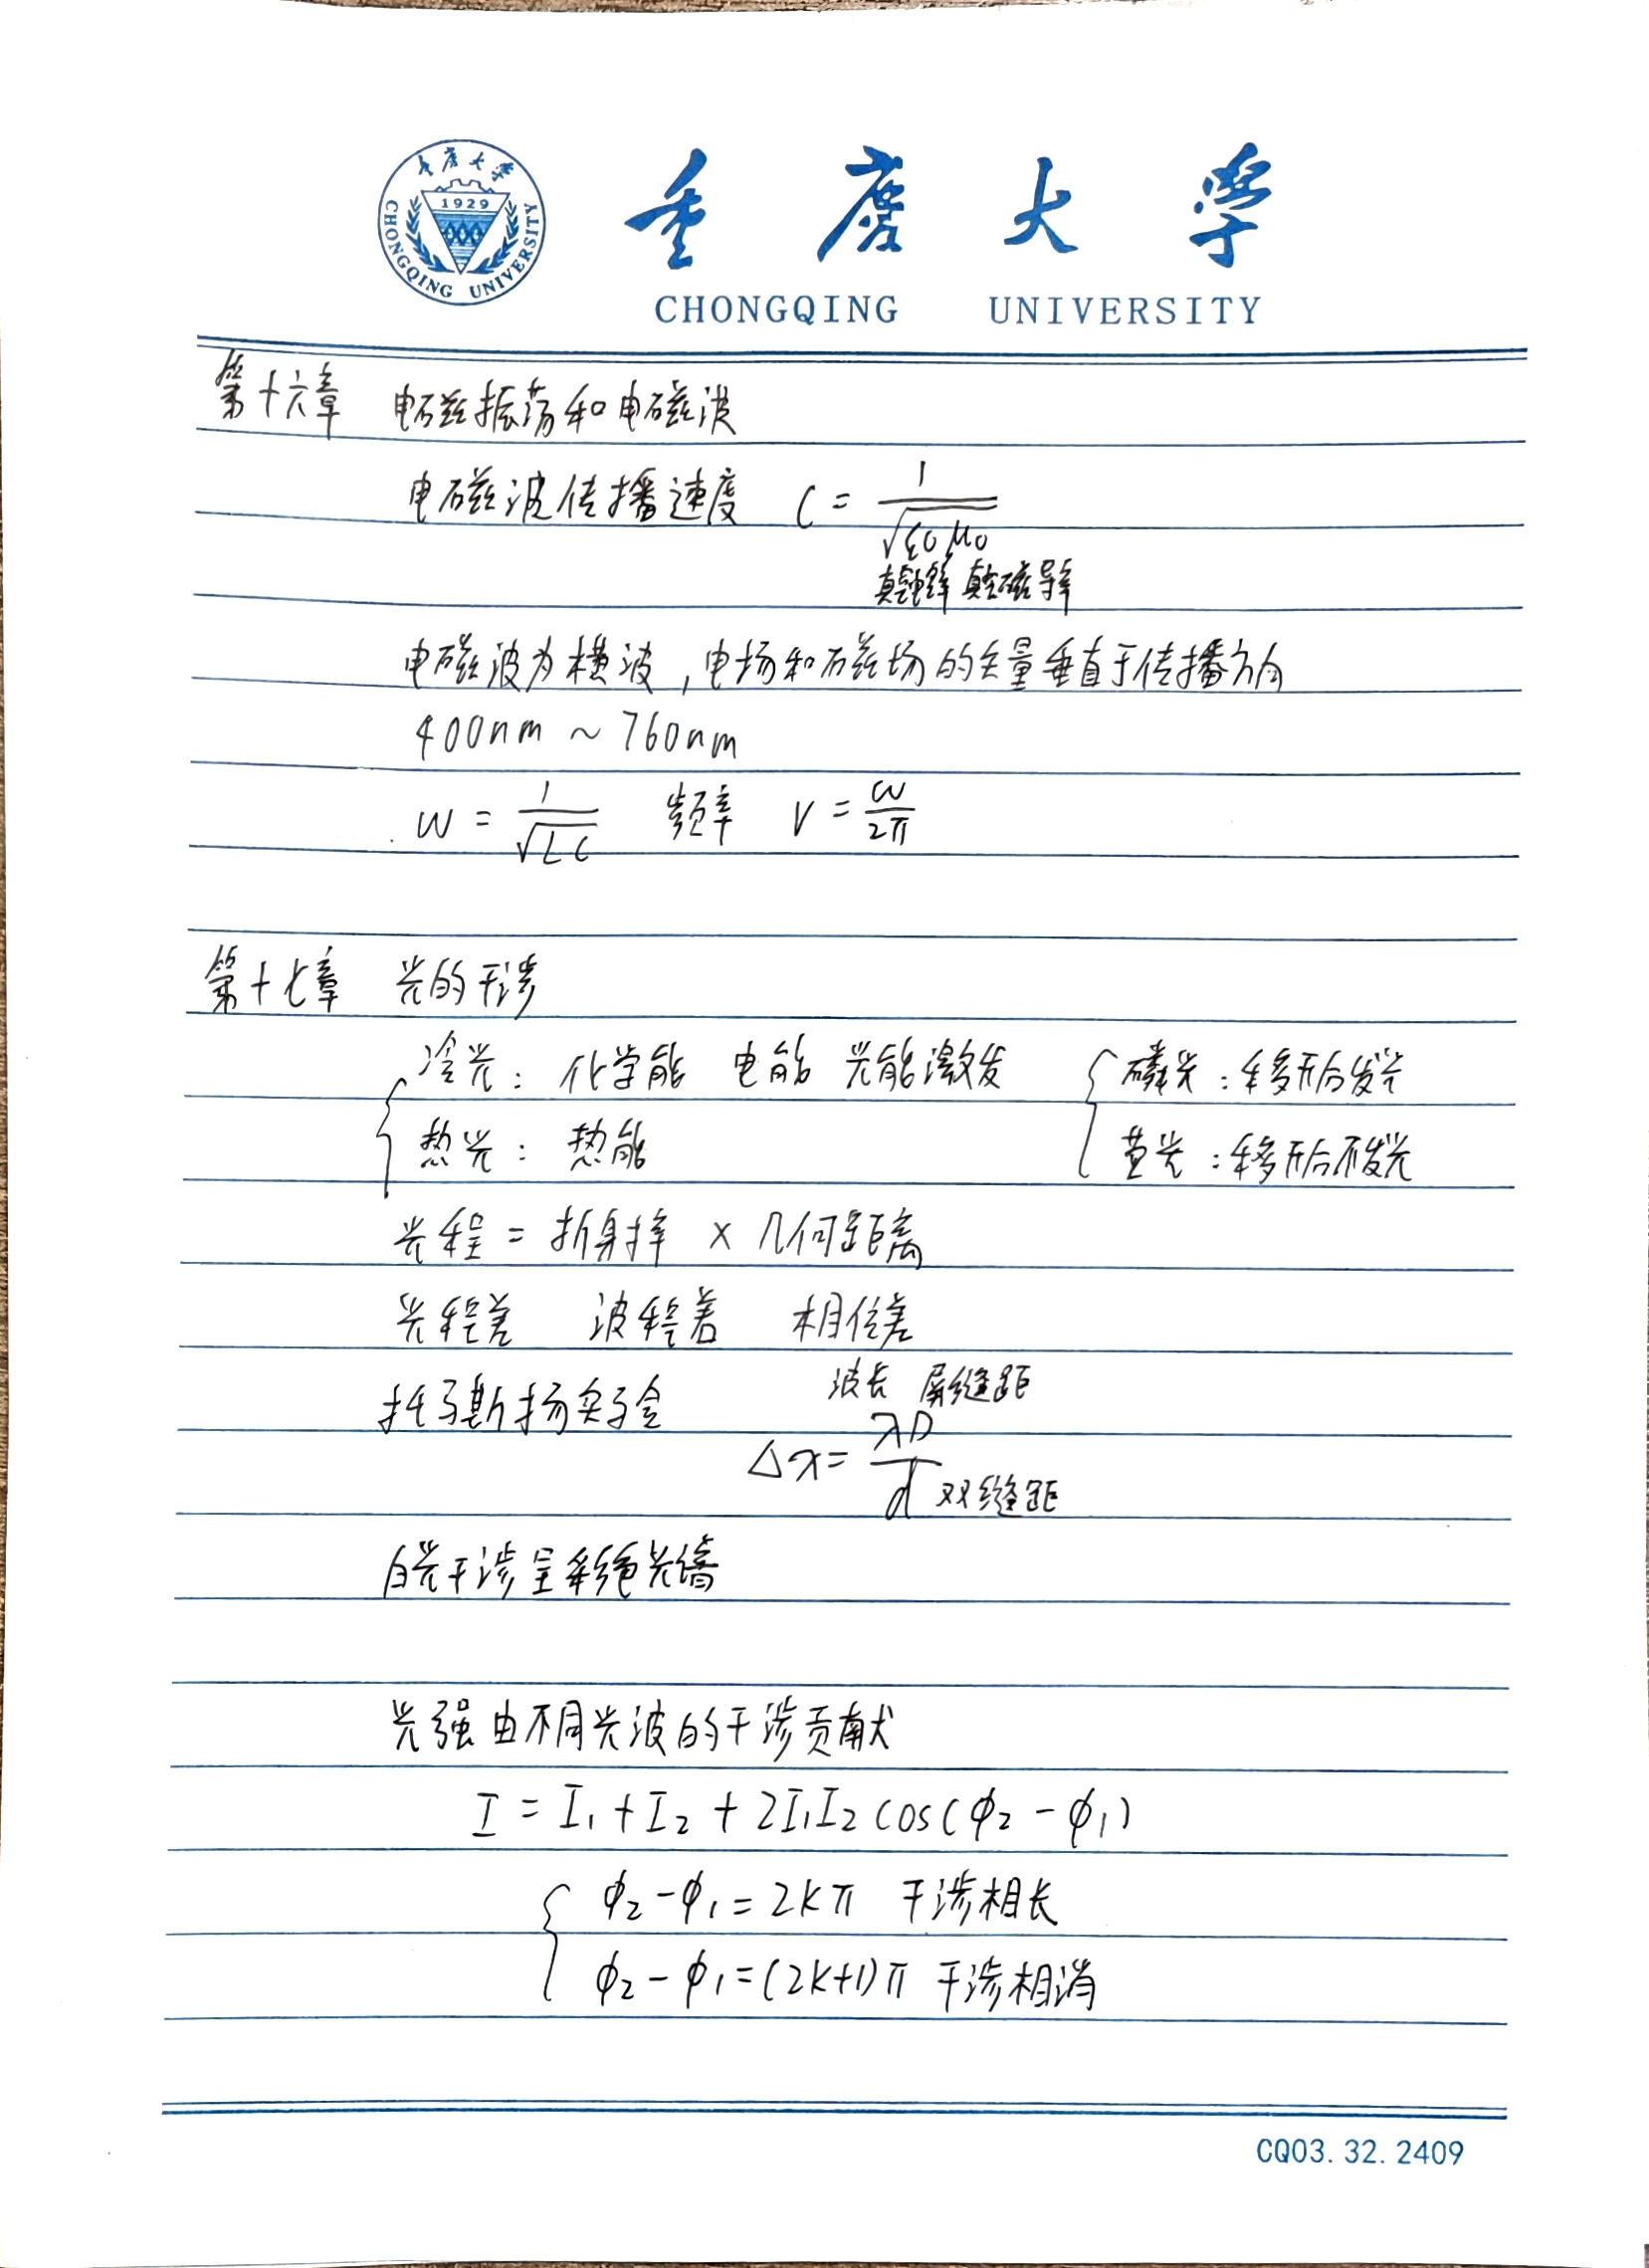 重庆大学
1929
CHONGQING UNIVERSITY
重庆大学
CHONGQING UNIVERSITY
第十六章 电磁振荡和电磁波
电磁波传播速度 C = 1/√ε0μ0
真空电容率 真空磁导率
电磁波为横波,电场和磁场的矢量垂直于传播方向
400nm ~ 760nm
w = 1/√LC 频率 ν = w/2π
第十七章 光的干涉
冷光: 化学能 电能 光能激发 { 磷光:移开后发光
{ 热光: 热能 荧光:移开后不发光
光程 = 折射率 × 几何距离
光程差 波程差 相位差
托马斯扬实验 波长 屏缝距
Δx = λD/d 双缝距
白光干涉呈彩色光谱
光强由不同光波的干涉贡献
I = I₁ + I₂ + 2I₁I₂ cos(ϕ₂ - ϕ₁)
{ ϕ₂ - ϕ₁ = 2kπ 干涉相长
ϕ₂ - ϕ₁ = (2k+1)π 干涉相消
CQ03.32.2409